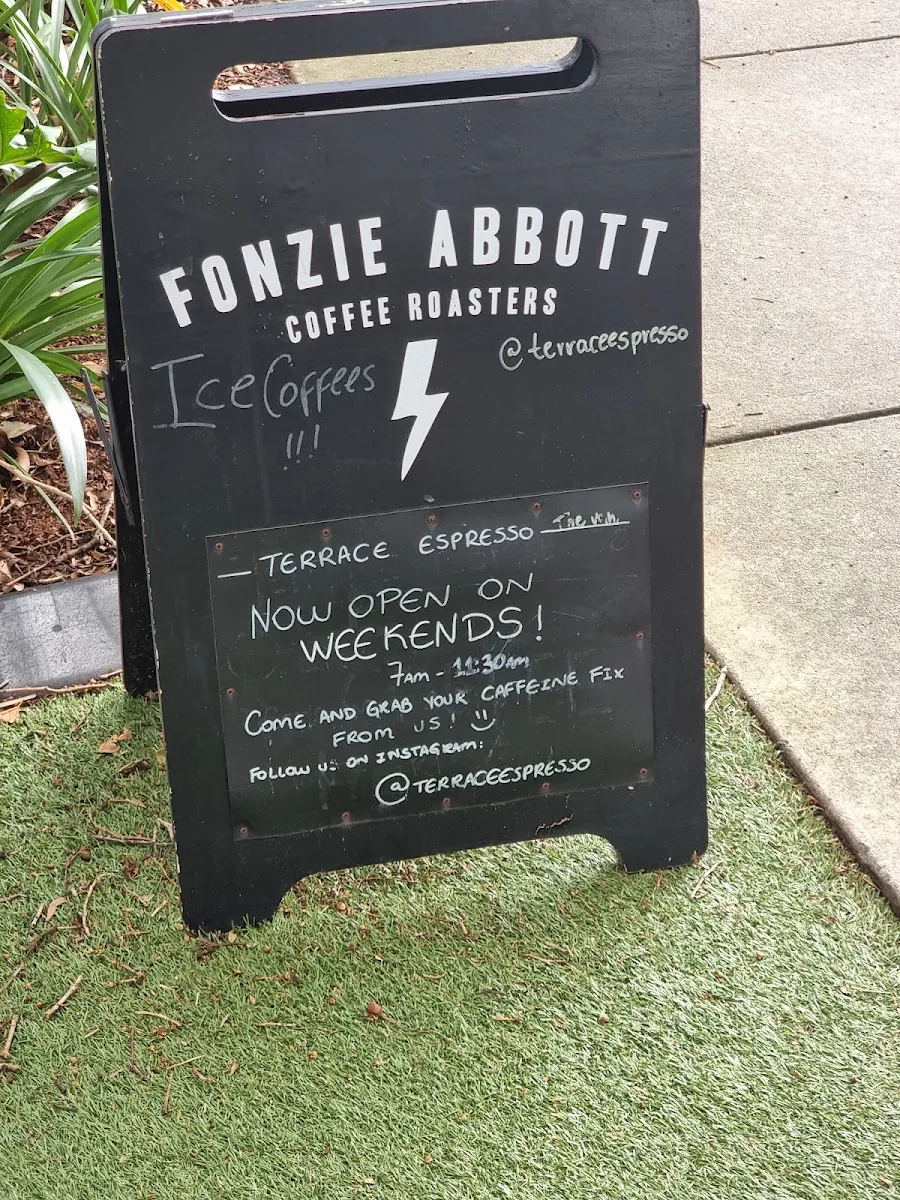 FONZIE ABBOTT
COFFEE ROASTERS
@terraceespresso
Ice Coffees
!!!
— TERRACE ESPRESSO —
NOW OPEN ON
WEEKENDS!
7AM - 11:30AM
COME AND GRAB YOUR CAFFEINE FIX
FROM US! :)
FOLLOW US ON INSTAGRAM:
@TERRACEESPRESSO